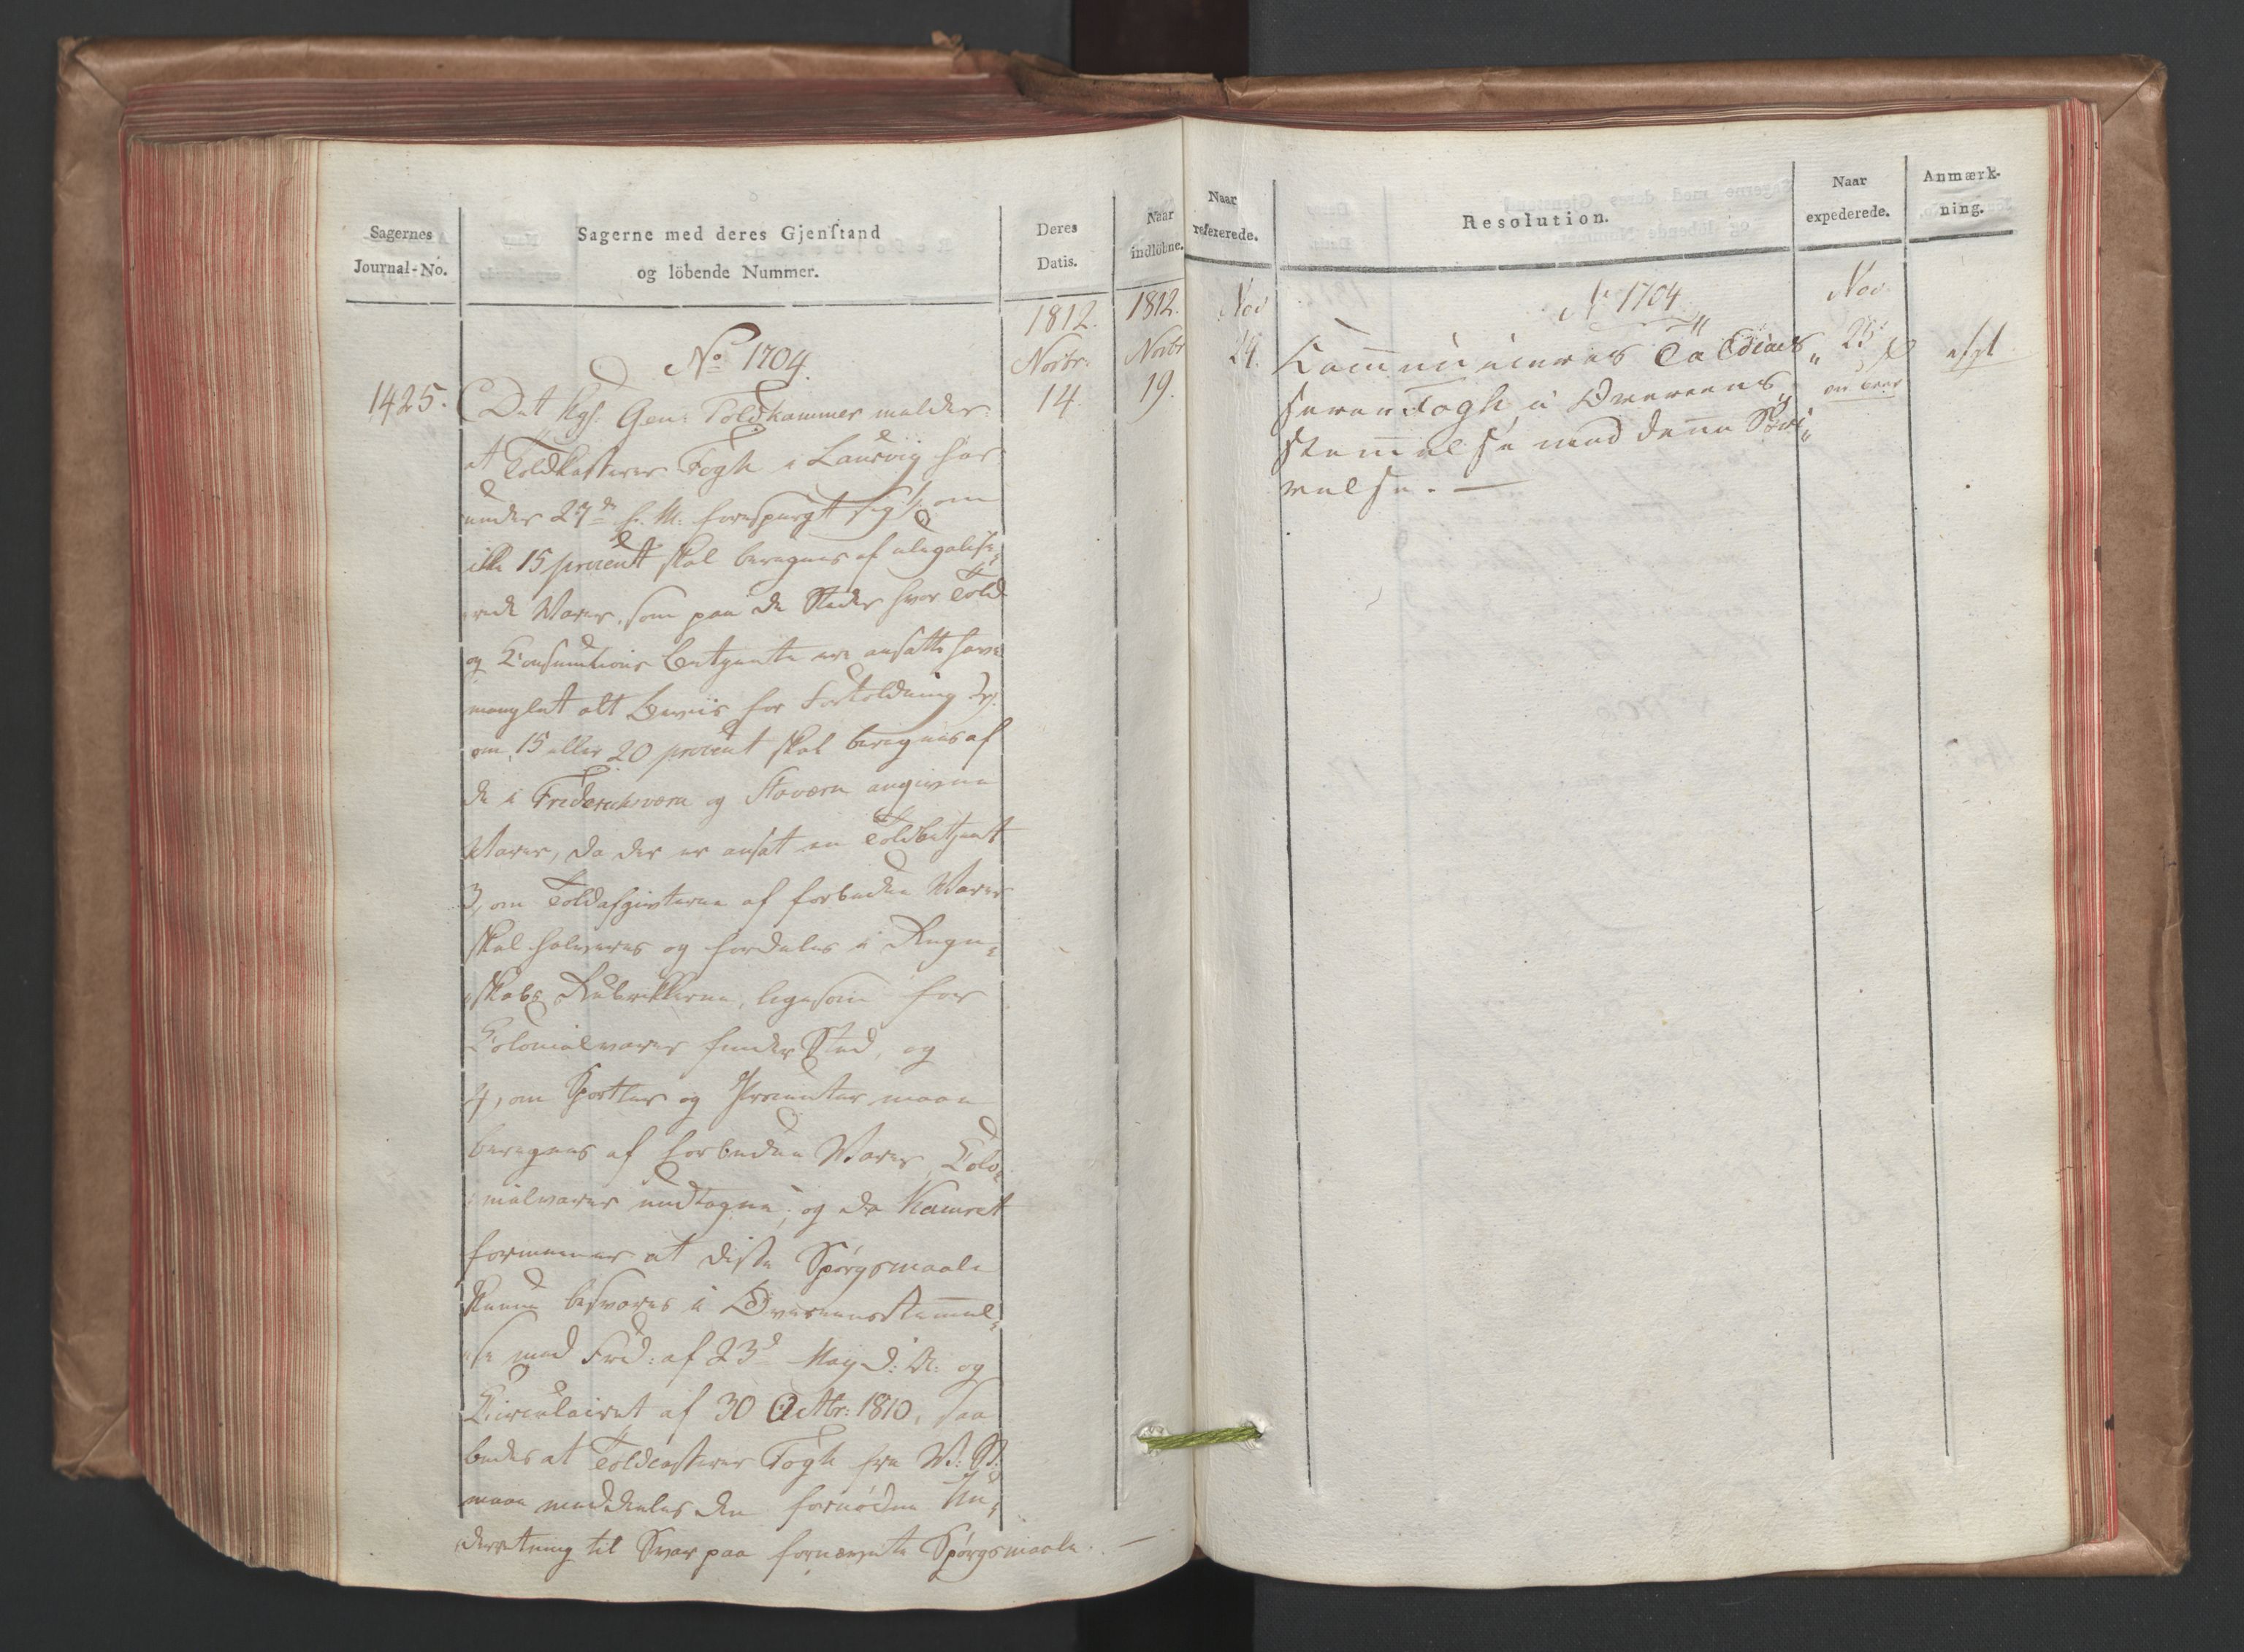 Sagernes
Journal-No.
Sagerne med deres Gjenstand
og löbende Nummer.
Deres
Datis.
Naar
indlöbne.
1812.
Novbr.
14.
1812.
Novbr
19.
No 1704.
1425.
Det kgl. Gen: Toldkammer melder:
at Toldkasserer Fogh i Laurvig har
under 27de f. M. forespurgt sig 1, om
ikke 15 procent skal beregnes af ulegalise„
„rede Varer, som paa de Steder hvor Told
og Consumtions Betjente ere ansatte have
manglet alt Beviis for Fortoldning 2,
om 15 eller 20 procent skal beregnes af
de i Friderichsværn og Staværn angivne
Varer, da der er ansat en Toldbetjent
3, om Toldafgivterne af forbudne Varer
skal halveres og fordeles i Regn„
„skabs Rubrikkerne, ligesom for
Colonialvarer finder Sted, og
4, om Sportler og Procenter maae
beregnes af forbudne Varer, Colo„
„nialvarer undtagne; og da Kamret
formener at disse Spörgsmaale
kunne besvares i Overeensstemmel„
„se med Frd: af 23d May d: A: og
Circulairet af 30 Octbr: 1810, saa
bedes at Toldcasserer Fogh fra
maae meddeeles den fornödne Un„
„derretning til Svar paa fornævnte Spörgsmaale. —
Naar
refererede.
Resolution.
Naar
expederede.
Anmærk-
ning.
Nov
24.
No 1704
Communiceres Toldcas„
sereren Fogh i Overeens„
stemmelse med denne Skri„
velse. —
Nov.
25